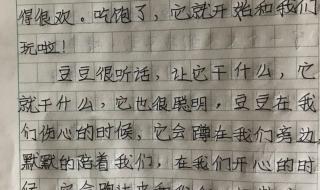 得很欢。吃饱了，它就开始和我们
玩啦！
豆豆很听话，让它干什么，它
就干什么，它也很聪明，豆豆在我
们伤心的时候，它会蹲在我们旁边
默默的陪着我们，在我们开心的时
候，它会跑过来和我们